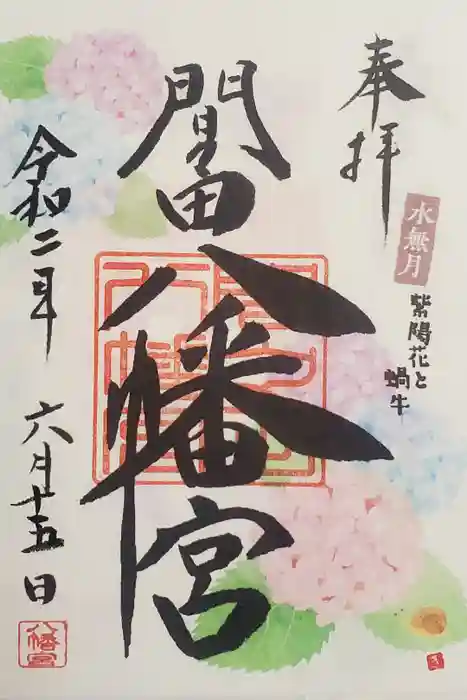 奉拝
水無月
紫陽花と
蝸牛
間々田八幡宮
令和二年 六月十五日
八幡宮